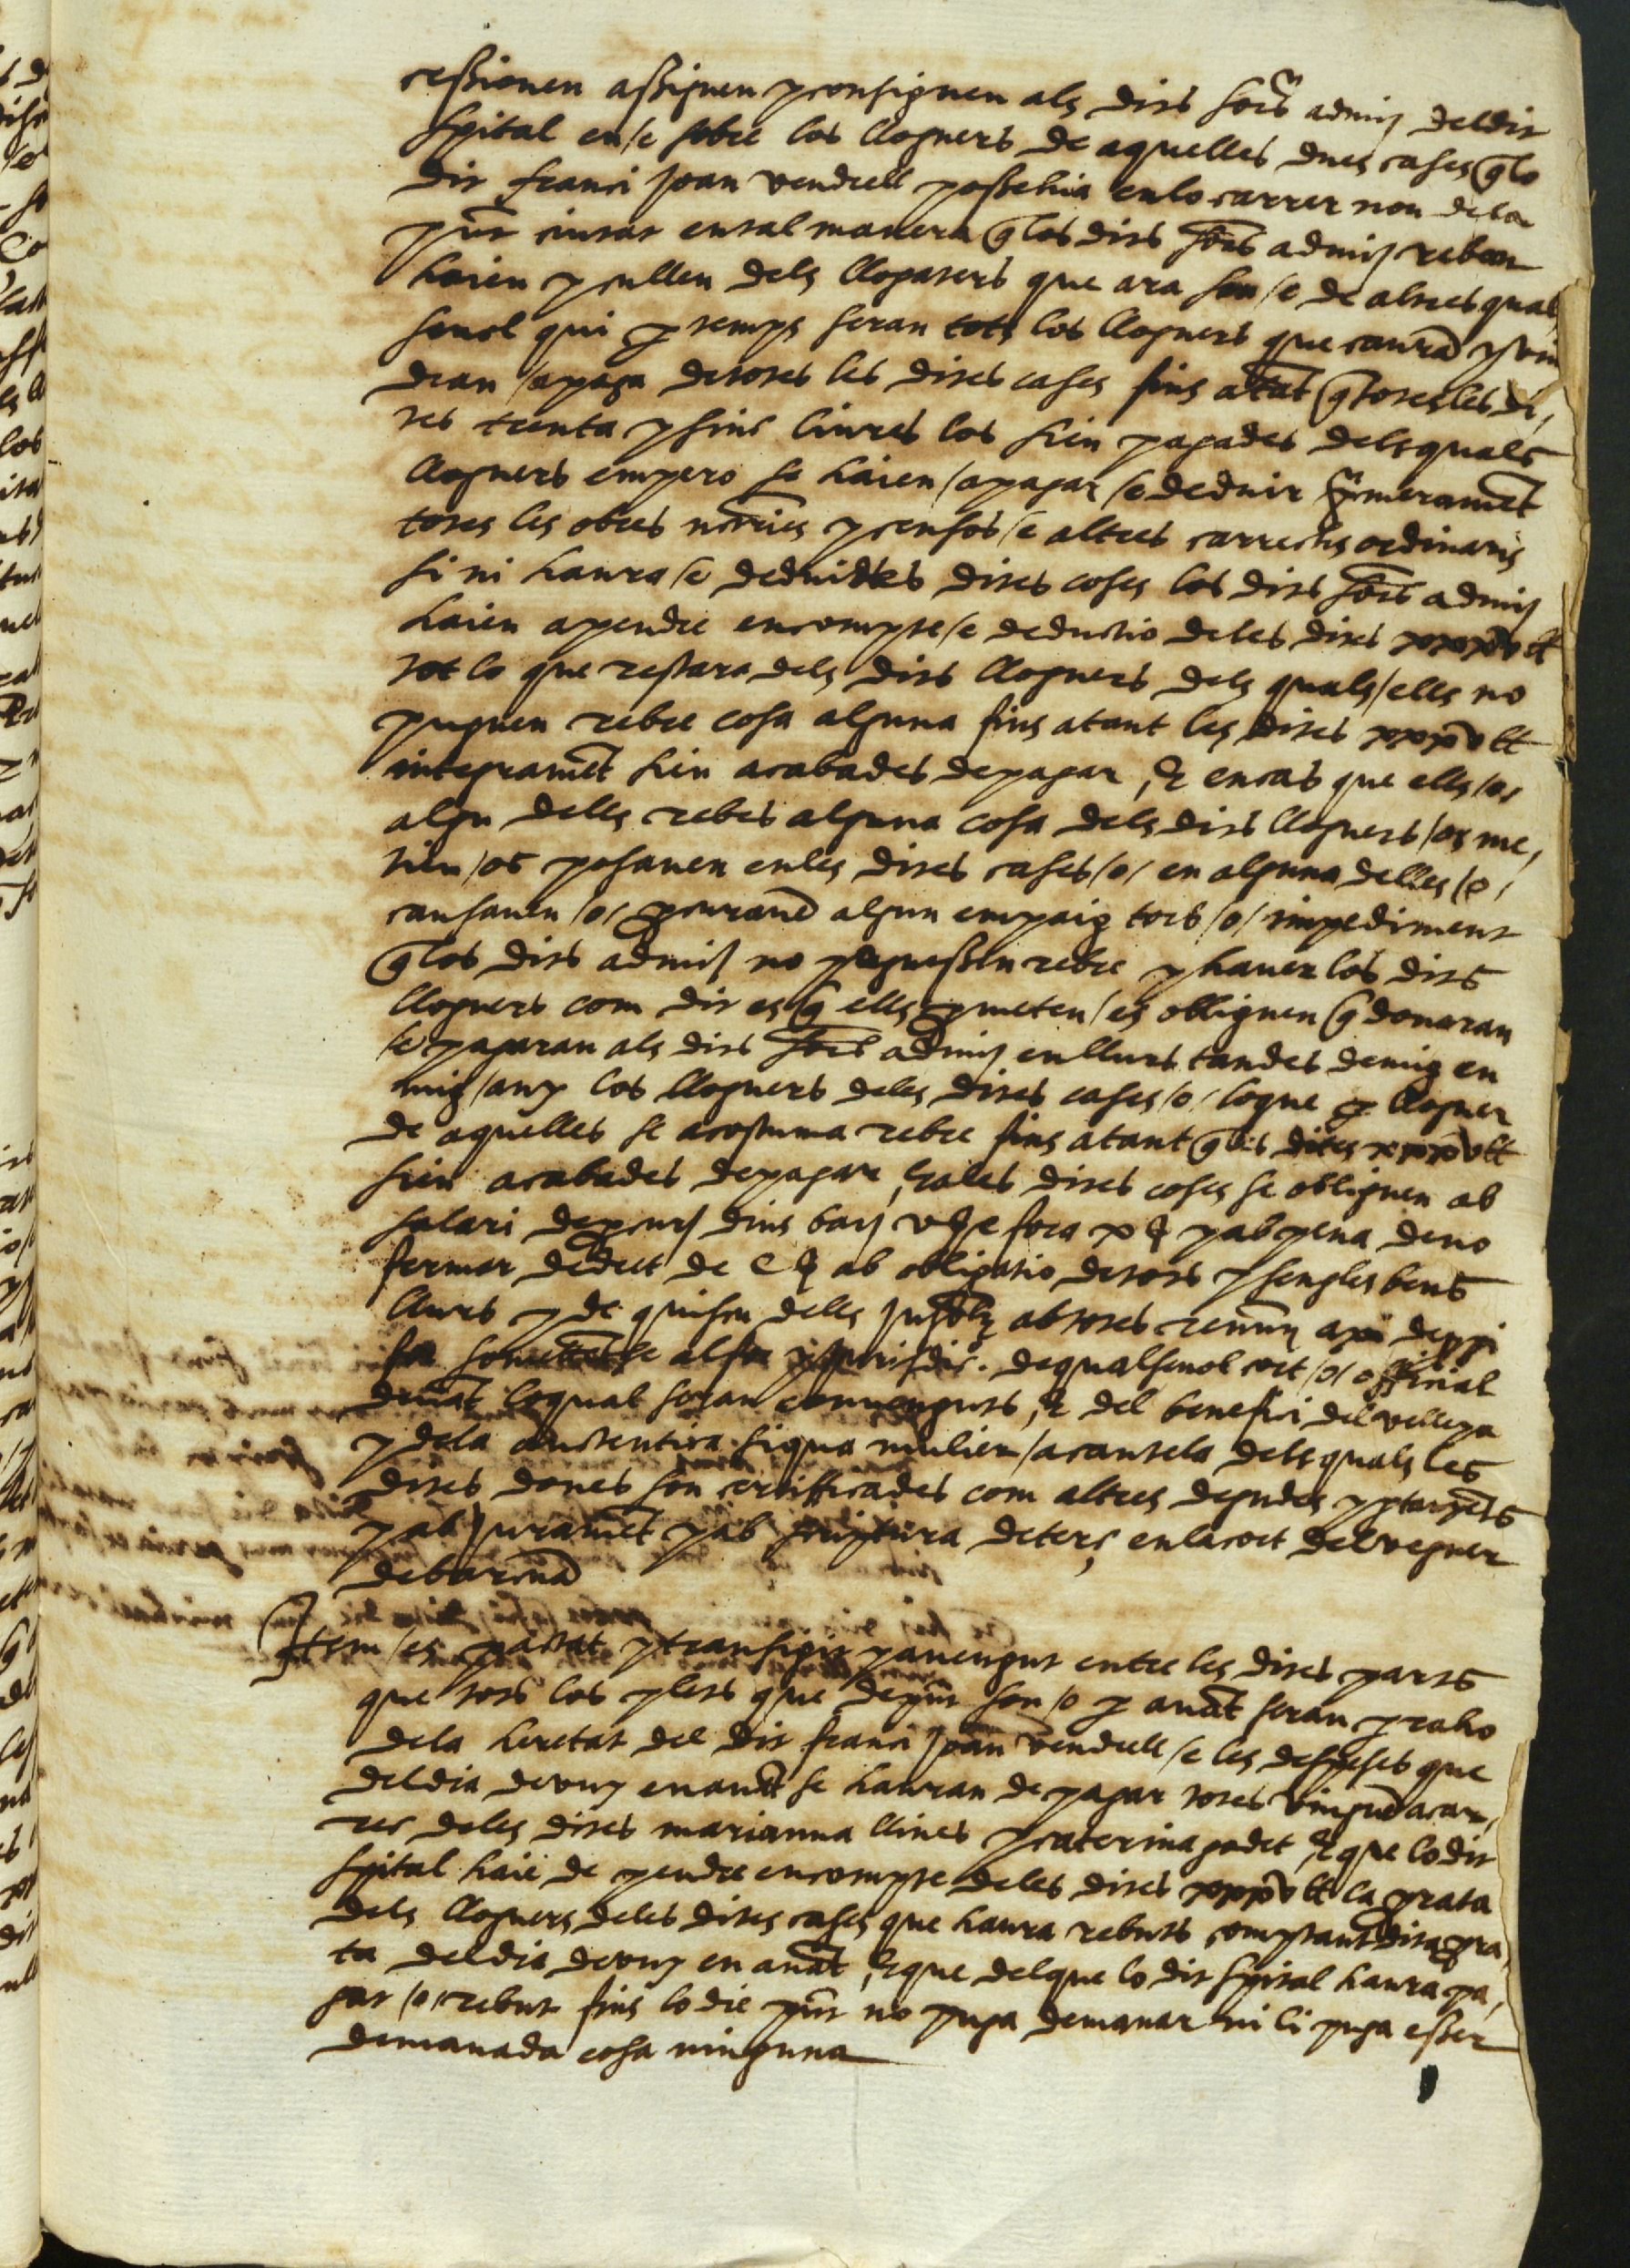 cessionen assignen y consignen als dits sors admis deldit
spital en /e sobre los lloguers de aquelles dues cases q̃ lo
dit franci Joan vendrell possehia en lo carrer nou dela
pñt ciutat en tal manera q̃ los dits sors admis reban
haien y cullen dels llogaters que ara son /e de altres qual
sevol qui p temps seran tots los lloguers que caurã y vin
dran /a paga de totes les dites cases fins atãt q̃ totes les di,
tes trenta y sinc liures los sien pagades dels quals
lloguers empero se haien /a pagar /e deduir p̃merament
totes les obres ncr̃ies y censos /e altres carrechs ordinaris
si ni haura /e deduides dites coses los dits sors admis
haien a pendre en compte /e deductio de les dites xxxv ll
tot lo que restara dels dits lloguers dels quals /ells no
puguen rebre cosa alguna fins atant les dites xxxv ll
integramẽt sien acabades de pagar, E en cas que ells /o/
algu dells rebes alguna cosa dels dits lloguers /os me,
tien /os posaven en les dites cases /o/ en alguna delles /o/
causaven /o/ pcuravẽ algun empaig torb /o/ impediment
q̃ los dits admis no poguessen rebre y haver los dits
lloguers com dit es q̃ ells pmeten /es obliguen q̃ donaran
/e pagaran als dits sors admis en llurs tandes de mig en
mig /any los lloguers deles dites cases /o/ loque p lloguer
de aquelles se acostuma rebre fins atant q̃ les dites xxxv ll
sien acabades de pagar, E ales dites coses se obliguen ab
salari de pcur̃ dins bar̃ v ß e fora x ß y ab pena de no
fermar de dret de C ß ab obligatio de tots y sengles bens
llurs y de quiscu deles Insolz ab totes renuñ axi de ppi
for sometẽtse al for y jurisdic. de qualsevol cort /o/ official
davãt loqual seran convenguts, E del benefici del velleya
y dela autentica. si qua mulier /a cautela dels quals les
dites dones son certifficades com altres degudes y ptanyẽts
y ab Juramẽt y ab scriptura de terç en la cort del veguer
de barcna
Item /es pactat y transigit y avengut entre les dites parts
que tots los plets que de pñt son /o p avãt seran p raho
dela heretat del dit franci Joan vendrell /e les despeses que
del dia de vuy en avãt se hauran de pagar totes vinguẽ a car,
rec deles dites marianna llines y caterina gadet, E que lo dit
spital haie de pendre en compte deles dites xxxv ll la prata
dels lloguers deles dites cases que haura rebuts comptant dita pra,
ta del dia de vuy en avãt, E que del que lo dit spital haura pa,
gat /o/ rebut fins lo die pñt no puga demanar ni li puga esser
demanada cosa ninguna